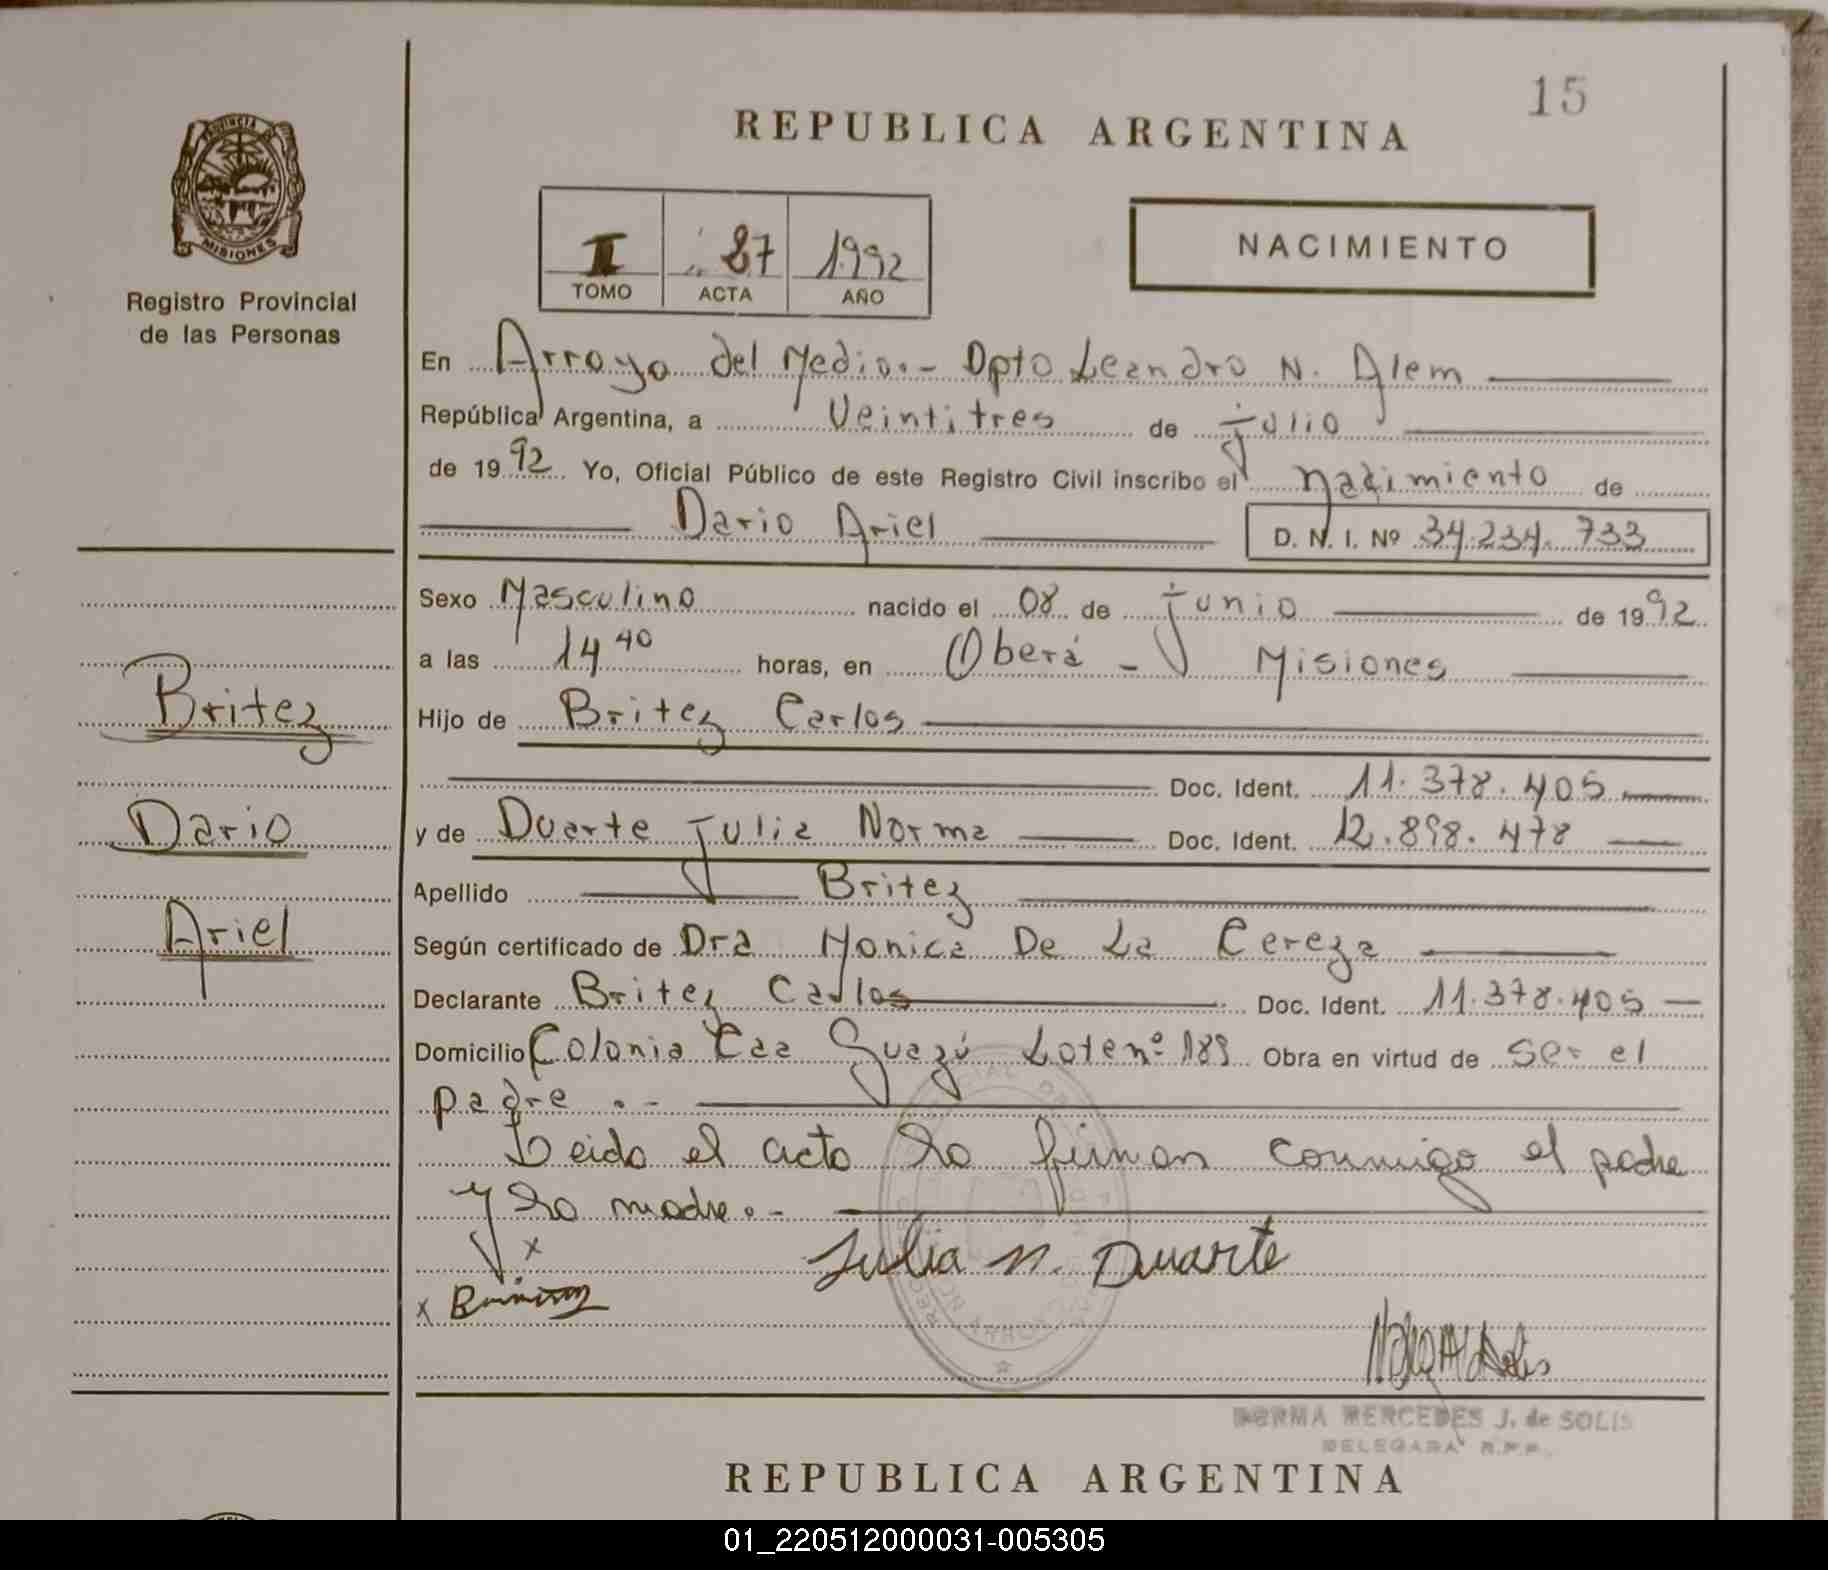 15
REPUBLICA ARGENTINA
PROVINCIA DE
MISIONES
Registro Provincial
de las Personas
I 87 1992
TOMO ACTA AÑO
NACIMIENTO
En Arroyo del Medio.- Dpto Leandro N. Alem
República Argentina, a Veintitres de julio
de 1992 Yo, Oficial Público de este Registro Civil inscribo el nacimiento de
Dario Ariel D. N. I. Nº 34.234.733
Sexo Masculino nacido el 08 de junio de 1992
a las 14 40 horas, en Oberá - Misiones
Hijo de Britez Carlos
Doc. Ident. 11.378.405
y de Duarte Julia Norma Doc. Ident. 12.898.478
Apellido Britez
Según certificado de Dra Monica De La Cereza
Declarante Britez Carlos Doc. Ident. 11.378.405
Domicilio Colonia Caa Guazú Lote nº 189 Obra en virtud de ser el
padre .-
Leido el acta la firman conmigo el padre
y la madre.-
Britez
Dario
Ariel
x
Julia N. Duarte
x
NORMA MERCEDES J. de SOLIS
DELEGADA R.P.P.
REPUBLICA ARGENTINA
01_220512000031-005305